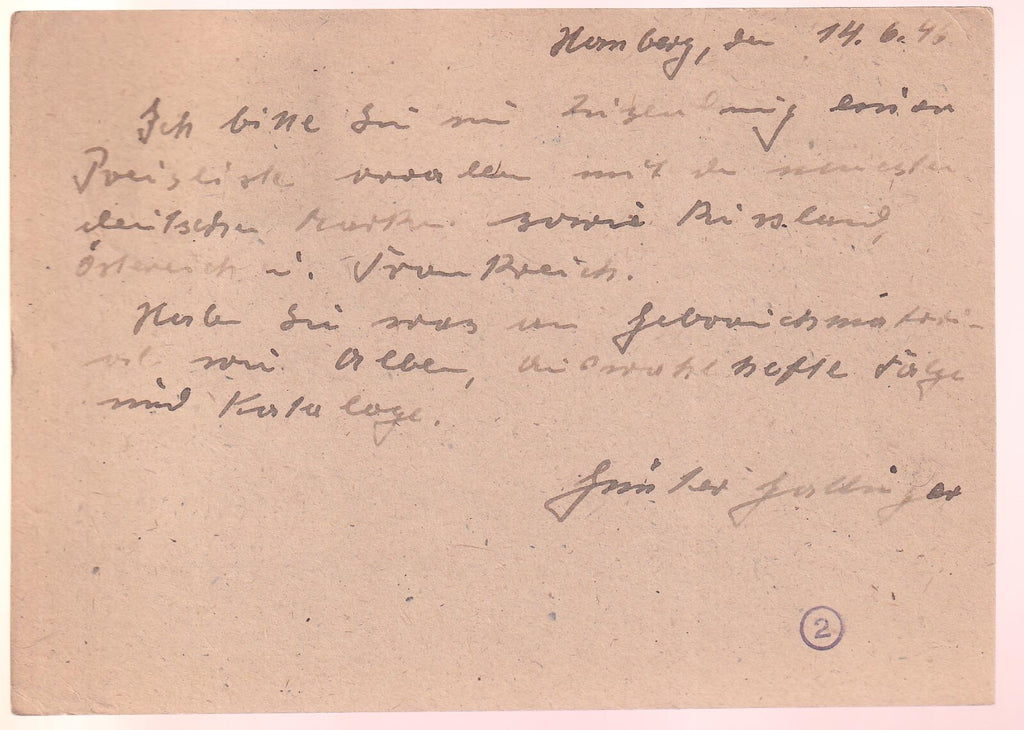 Homberg, den 14.6.46
Ich bitte Sie um einen
Preisliste mit den neuesten
deutschen Marken sowie Russland,
Östereich u. Frankreich.
Haben Sie was an Gebrauchsmateri-
al wie Alben, Auswahlhefte
und Kataloge.
Günter
2